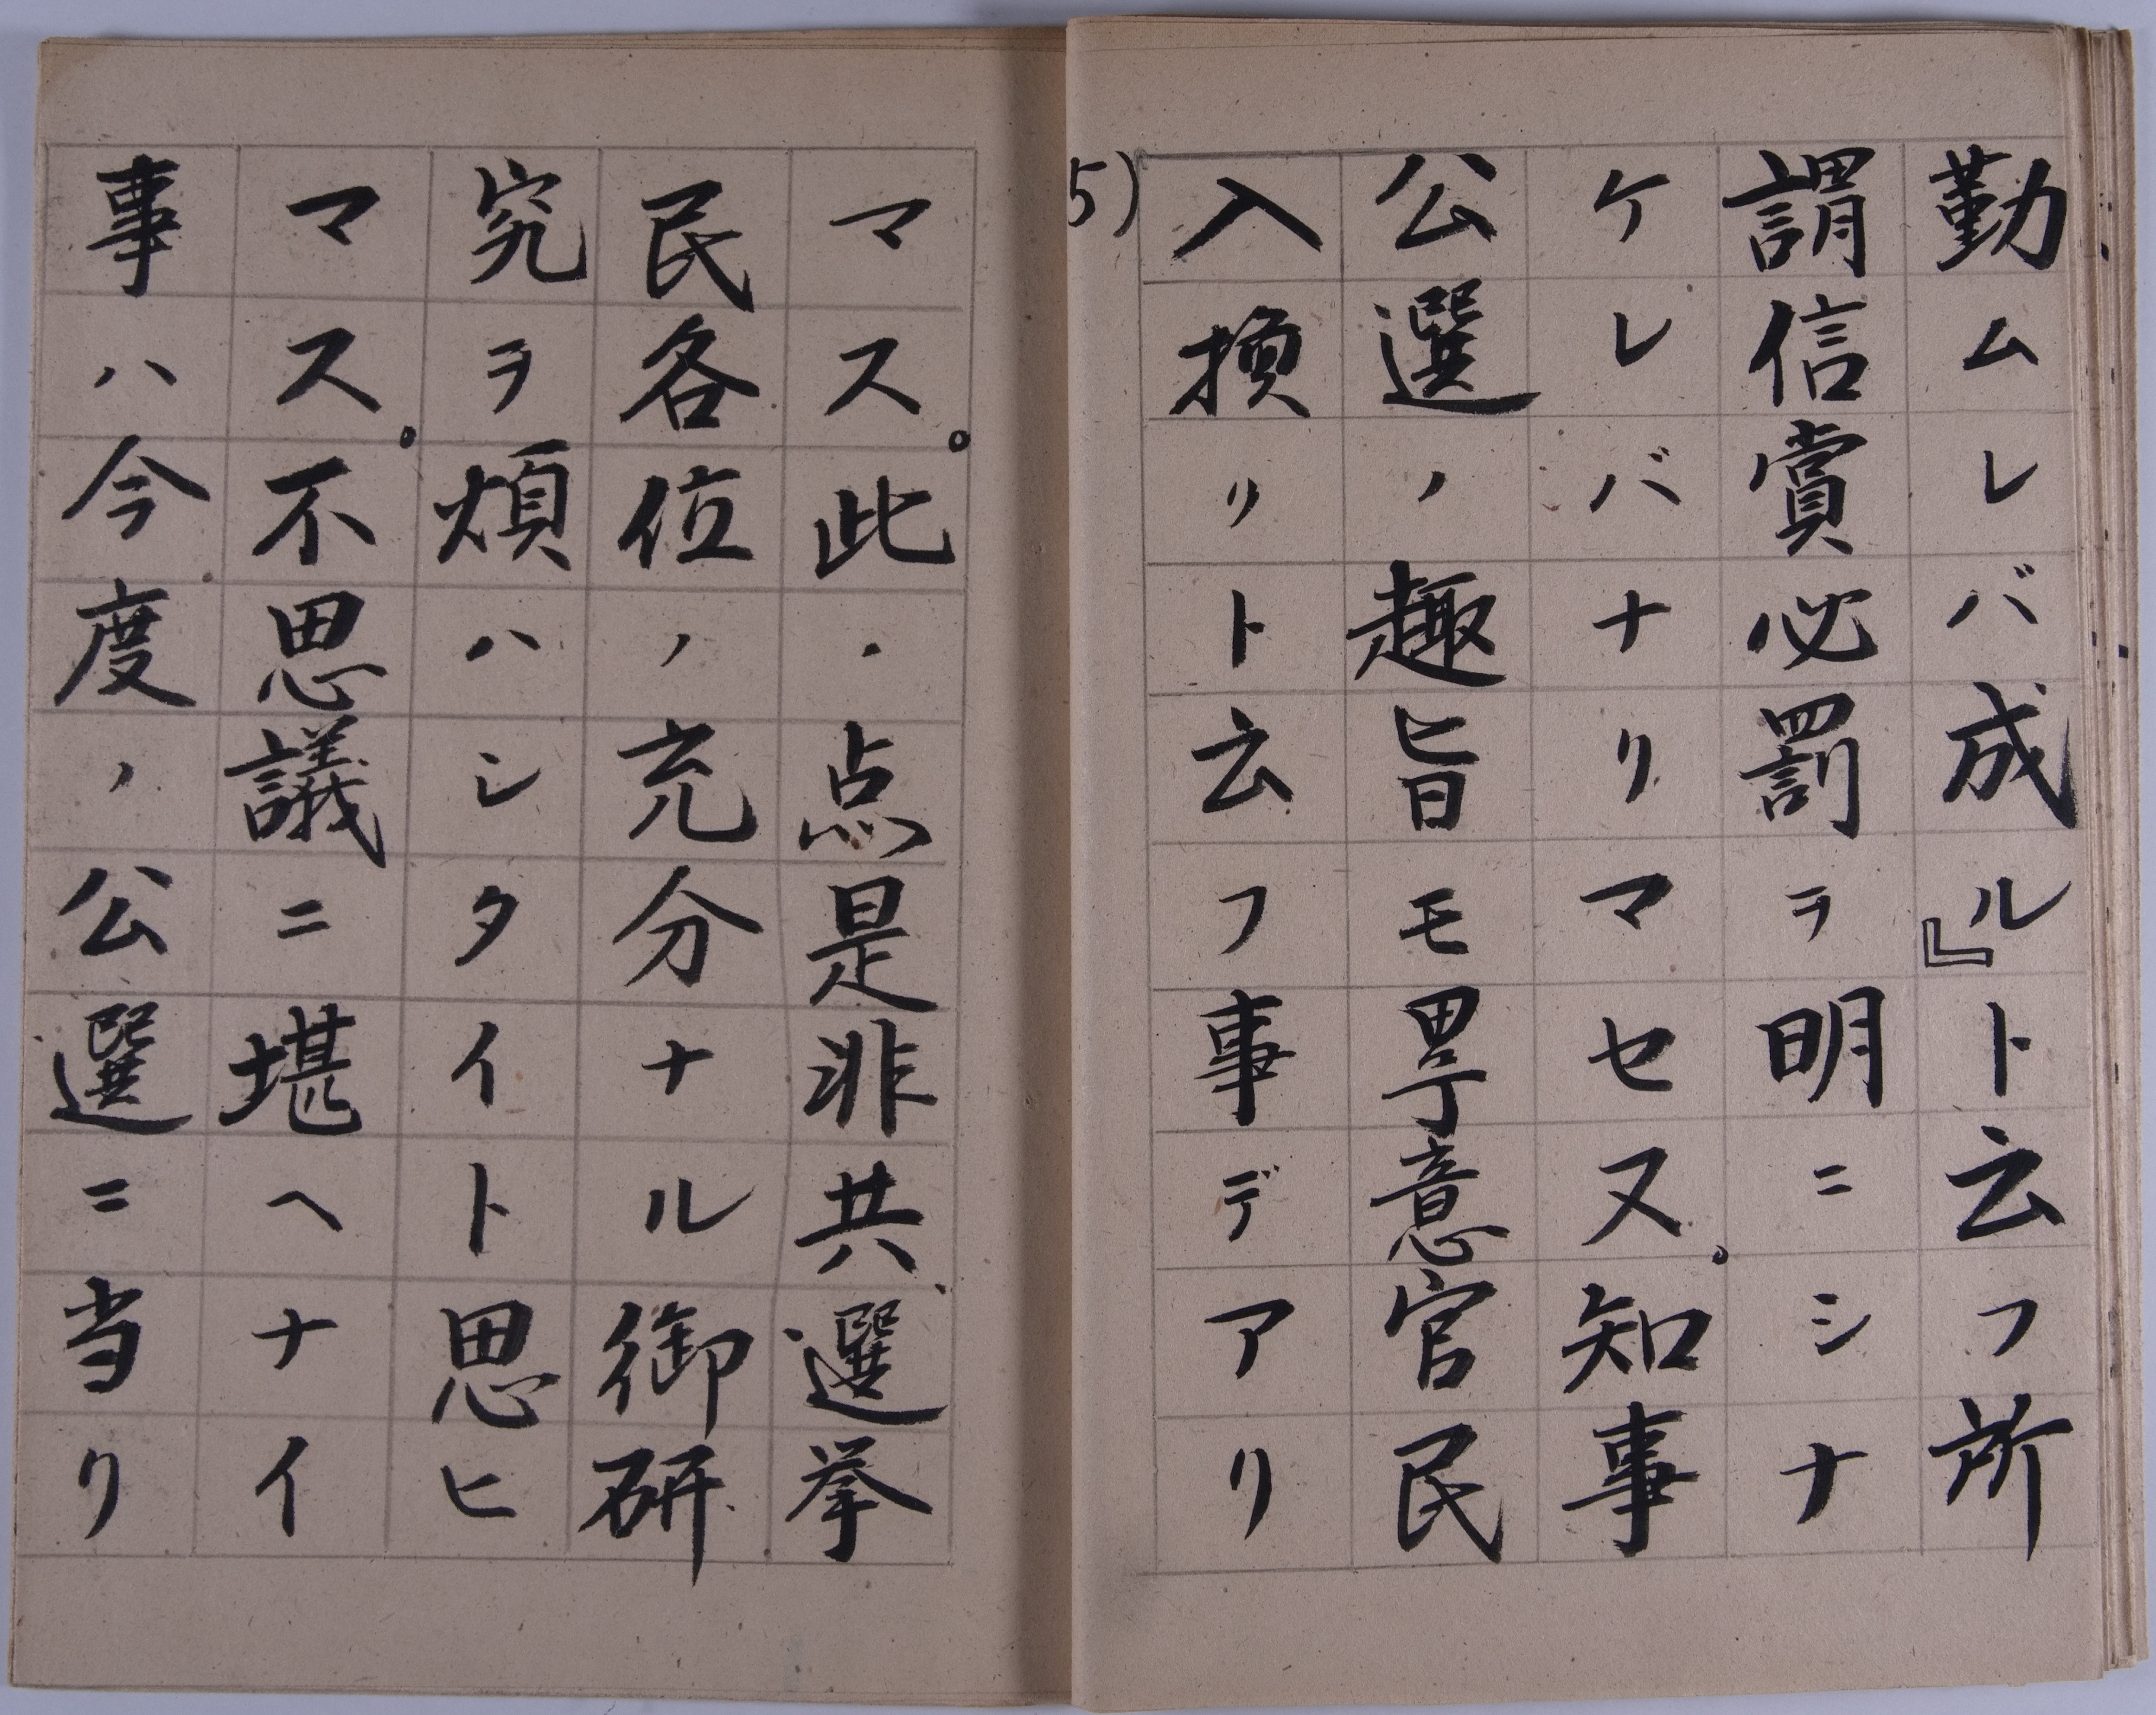 勤ムレバ成ル』ト云フ所
謂信賞必罰ヲ明ニシナ
ケレバナリマセヌ。知事
公選ノ趣旨モ畢竟意官民
入換リト云フ事デアリ
5)
マス。此ノ点是非共、選挙
民各位ノ充分ナル御研
究ヲ煩ハシタイト思ヒ
マス。不思議ニ堪ヘナイ
事ハ今度ノ公選ニ当リ